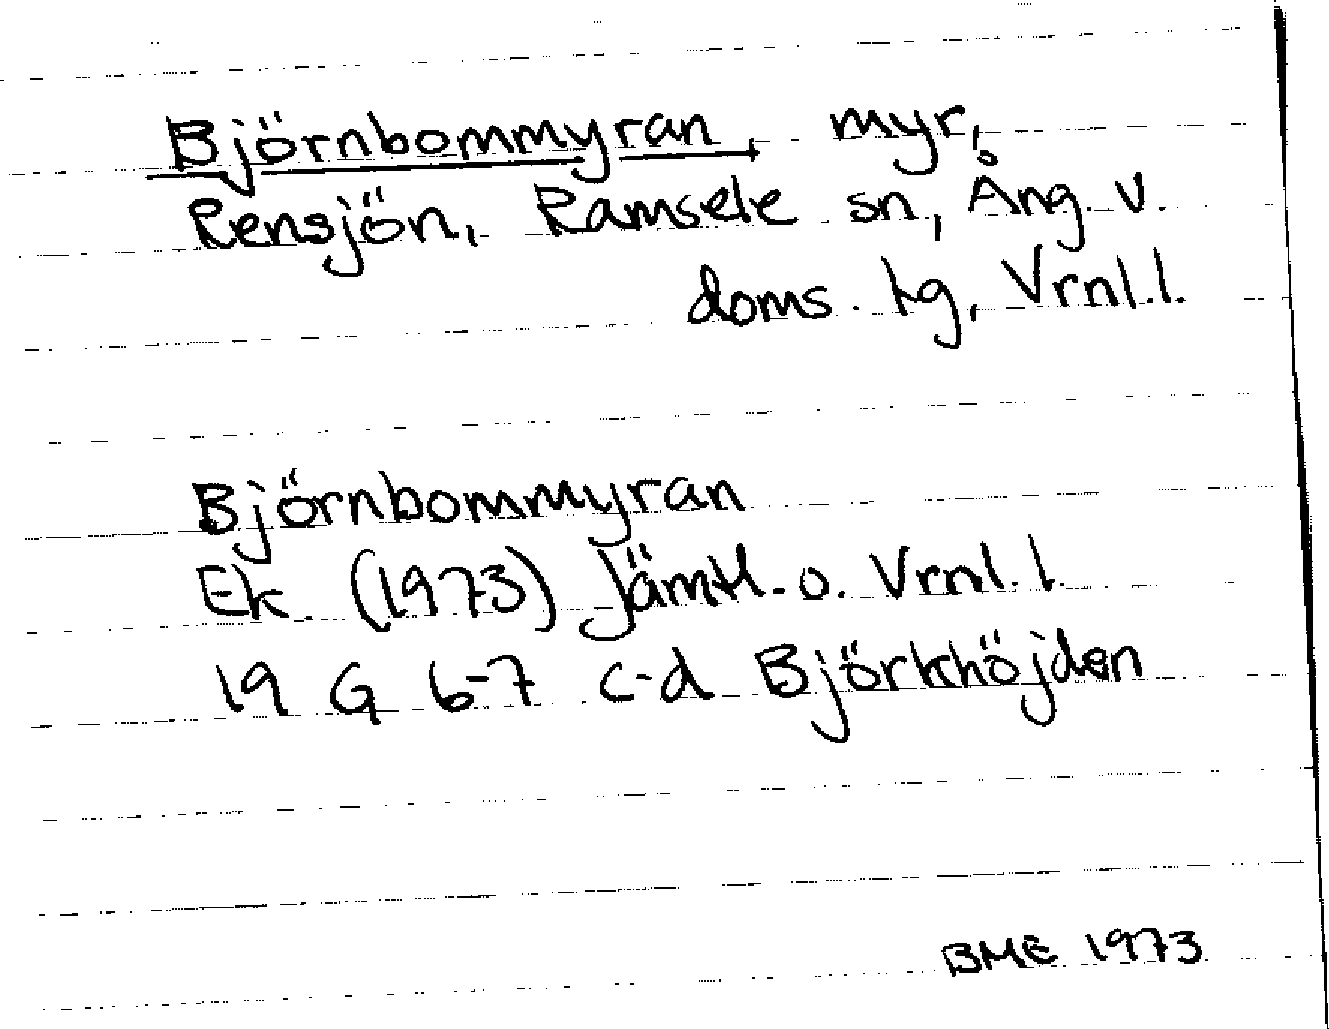 Björnbommyran, myr,
Rensjön, Ramsele sn, Ång. v.
doms. tg, Vrnl.l.
Björnbommyran
Ek (1973) Jämtl. o. Vrnl. l.
19 G 6-7 c-d Björkhöjden
BME 1973